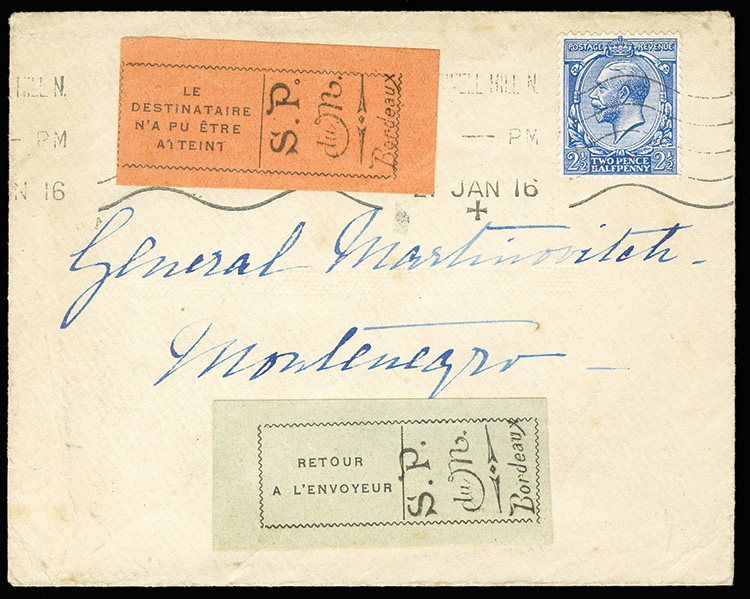 HILL N.
WELL HILL N.
POSTAGE REVENUE
PM
PM
TWO PENCE
HALFPENNY
2½ 2½
N 16
JAN 16
LE
DESTINATAIRE
N'A PU ÊTRE
ATTEINT
S.P.
du M.
Bordeaux
General Martinovitch
Montenegro
RETOUR
A L'ENVOYEUR
S.P.
du M.
Bordeaux